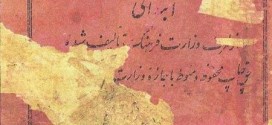 ابتدائی
از طرف وزارت فرهنگ تألیف شده
حق چاپ محفوظ و منوط باجازهٔ وزارت